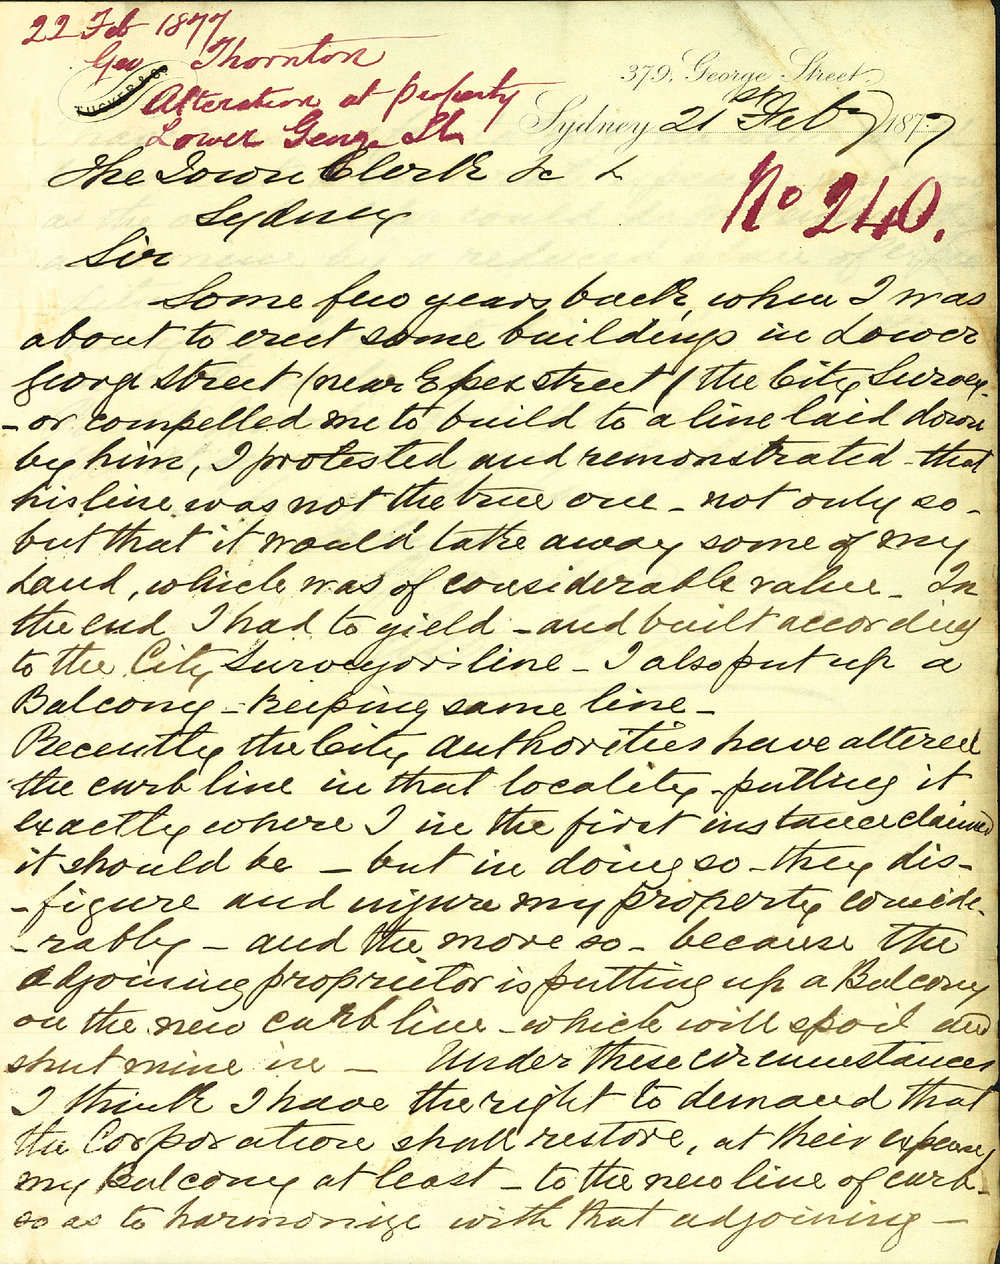 22 Feb 1877
Geo Thornton
TUCKER & Co
Alteration at property
Lower George St
379. George Street.
Sydney 21st Feby 1877
The Town Clerk &c &
Sydney
No 240.
Sir
Some few years back, when I was
about to erect some buildings in Lower
George Street (near Essex street) the City Survey-
-or compelled me to build to a line laid down
by him, I protested and remonstrated - that
his line was not the true one - not only so -
but that it would take away some of my
Land, which was of considerable value - In
the end I had to yield - and built according
to the City Surveyors line - I also put up a
Balcony - Keeping same line -
Recently the City Authorities have altered
the curb line in that locality - putting it
exactly where I in the first instance claimed
it should be - but in doing so - they dis-
-figure and injure my property conside-
-rably - and the more so - because the
adjoining proprietor is putting up a Balcony
on the new curb line - which will spoil and
shut mine in - Under these circumstances
I think I have the right to demand that
the Corporation shall restore, at their expense,
my Balcony at least - to the new line of curb -
so as to harmonize with that adjoining -